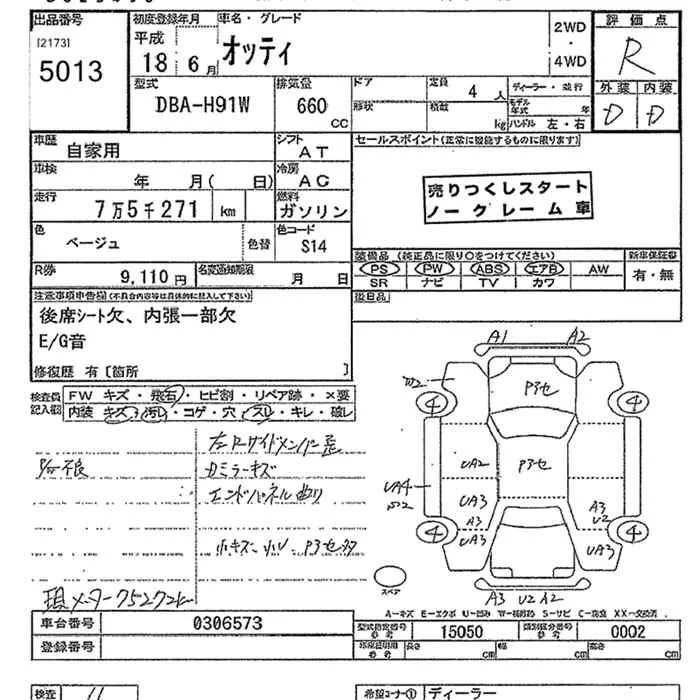 出品番号
初度登録年月
車名・グレード
[2173]
5013
平成
18年6月
オッティ
2WD
・
4WD
評価点
R
外装 内装
D D
型式
DBA-H91W
排気量
660
CC
ドア
形状
定員
4人
積載
kg
ディーラー・並行
モデル年式 年
ハンドル 左・右
車歴
自家用
シフト
AT
セールスポイント(正常に機能するものに限ります)
車検
年 月( 日)
冷房
AC
売りつくしスタート
ノークレーム車
走行
7万5千271 km
燃料
ガソリン
色
ベージュ
色替
色コード
S14
装備品 (純正品に限り○をつけてください)
新車保証書
PS PW ABS エアB AW
SR ナビ TV カワ
有・無
R券
9,110円
名変通知期限
月 日
後日品
注意事項申告欄(不具合内容等は具体的に記入して下さい)
後席シート欠、内張一部欠
E/G音
修復歴 有[箇所 ]
検査員
記入欄
FW キズ・飛石・ヒビ割・リペア跡・×要
内装 キズ・汚し・コゲ・穴・スレ・キレ・破し
左Rサイドメンバー歪
Dミラーキズ
エンドパネル曲り
小キズ
現メーター75272km
A1 A2
4 4
Pアセ
UA2
Pアセ
UA4
UA3
A3
UA3
A3
U2
UA3
4 4
A3 U2 A2
スペア
A-キズ E-エクボ U-凹み W-補修跡 S-サビ C-腐食 XX-交換済
車台番号
0306573
型式指定番号
参考
15050
類別区分番号
参考
0002
登録番号
長さ cm
幅 cm
高さ cm
検査
11
希望コーナー①
ディーラー